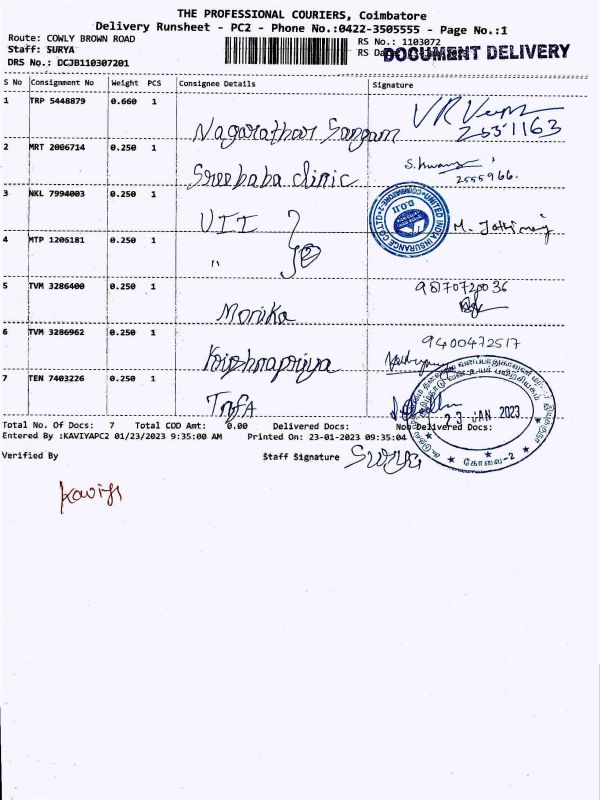 THE PROFESSIONAL COURIERS, Coimbatore
Delivery Runsheet - PC2 - Phone No.:0422-3505555 - Page No.:1
Route: COWLY BROWN ROAD
RS No.: 1103072
Staff: SURYA
RS Da
DOCUMENT DELIVERY
DRS No.: DCJB110307201
S No Consignment No Weight PCS Consignee Details Signature
1 TRP 5448879 0.660 1 Nagarathar Sangam
2531163
2 MRT 2006714 0.250 1 Sreebaba clinic
2555966.
3 NKL 7994003 0.250 1 UII
UNITED INDIA INSURANCE CO LTD
COIMBATORE-2
D.O.II
4 MTP 1206181 0.250 1 "
5 TVM 3286400 0.250 1 Monika
9870720036
6 TVM 3286962 0.250 1 Krishnapriya
9400472517
7 TEN 7403226 0.250 1 TNFA
23 JAN 2023
கோவை-2
Total No. Of Docs: 7 Total COD Amt: 0.00 Delivered Docs: Non Delivered Docs:
Entered By :KAVIYAPC2 01/23/2023 9:35:00 AM Printed On: 23-01-2023 09:35:04
Verified By Staff Signature Surya
Kaviya